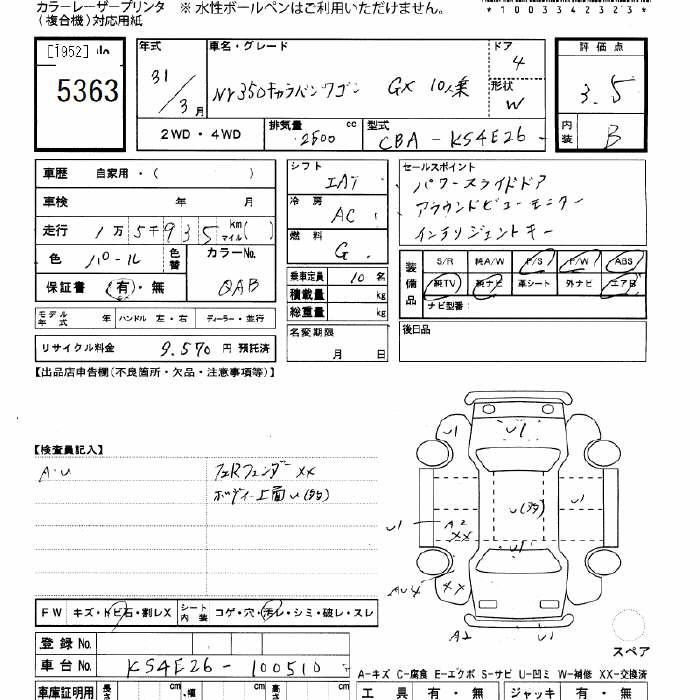 カラーレーザープリンタ ※ 水性ボールペンはご利用いただけません。
(複合機)対応用紙
*1003342323*
[1952]
5363
年式
31/3月
車名・グレード
NV350キャラバンワゴン GX 10人乗
ドア
4
形状
W
評価点
3.5
内装
B
2WD・4WD
排気量
2500 cc
型式
CBA-KS4E26-
車歴 自家用・( )
車検 年 月
走行 1万5千935 km マイル( )
色 パール 色替
カラーNo.
QAB
保証書 有・無
シフト
IAT
冷房
AC
燃料
G
乗車定員 10名
積載量 kg
総重量 kg
セールスポイント
パワースライドドア
アラウンドビューモニター
インテリジェントキー
装備品
S/R 純A/W P/S P/W ABS
純TV 純ナビ 革シート 外ナビ エアB
ナビ型番:
モデル年式 年 ハンドル 左・右 ディーラー・並行
リサイクル料金 9.570 円 預託済
名変期限
月 日
後日品
【出品店申告欄(不良箇所・欠品・注意事項等)】
【検査員記入】
A・U
左Rフェンダー XX
ボディー上面U(多)
U1
U1
U(多)
U1
U1
A2
XX
U1
AU4
XX
A2
U1
FW キズ・トビ石・割レX シート内装 コゲ・穴・汚レ・シミ・破レ・スレ
スペア
登録No.
車台No. KS4E26-100510
A-キズ C-腐食 E-エクボ S-サビ U-凹ミ W-補修 XX-交換済
車庫証明用 長さ cm 幅 cm cm
工具 有・無 ジャッキ 有・無